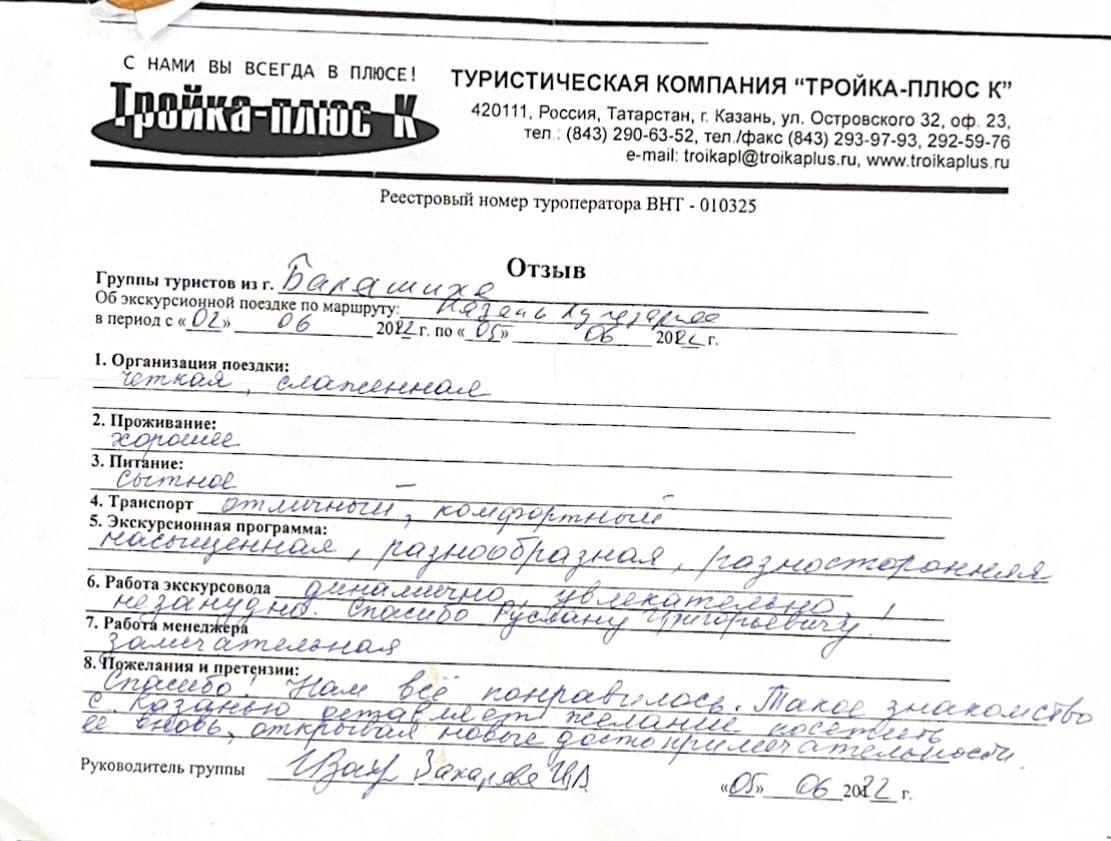 С НАМИ ВЫ ВСЕГДА В ПЛЮСЕ!
Тройка-плюс К
ТУРИСТИЧЕСКАЯ КОМПАНИЯ “ТРОЙКА-ПЛЮС К”
420111, Россия, Татарстан, г. Казань, ул. Островского 32, оф. 23,
тел.: (843) 290-63-52, тел./факс (843) 293-97-93, 292-59-76
e-mail: troikapl@troikaplus.ru, www.troikaplus.ru
Реестровый номер туроператора ВНТ - 010325
Отзыв
Группы туристов из г. Балашихе
Об экскурсионной поездке по маршруту: Казань
в период с «02» 06 2022 г. по «05» 06 2022 г.
1. Организация поездки:
четкая, слаженная
2. Проживание:
хорошее
3. Питание:
сытное
4. Транспорт отличный, комфортный
5. Экскурсионная программа:
насыщенная, разнообразная, разносторонняя
6. Работа экскурсовода динамично, увлекательно,
незанудно. Спасибо Руслану Григорьевичу!
7. Работа менеджера
замечательная
8. Пожелания и претензии:
Спасибо! Нам всё понравилось. Такое знакомство
с Казанью оставляет желание посетить
её вновь, открывая новые достопримечательности.
Руководитель группы Захарова
«05» 06 2022 г.